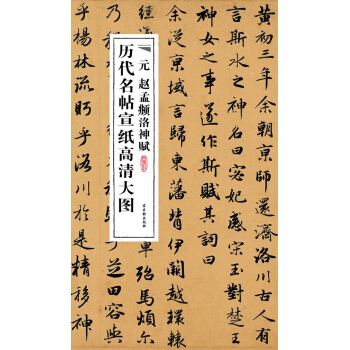 黄初三年余朝京師還濟洛川古人有
言斯水之神名曰宓妃感宋玉對楚王
神女之事遂作斯賦其詞曰
余從京域言歸東藩背伊闕越轘轅
經
車殆馬煩尔
芝田容與
乎楊林流眄乎洛川於是精移神
元 赵孟頫洛神赋
历代名帖宣纸高清大图